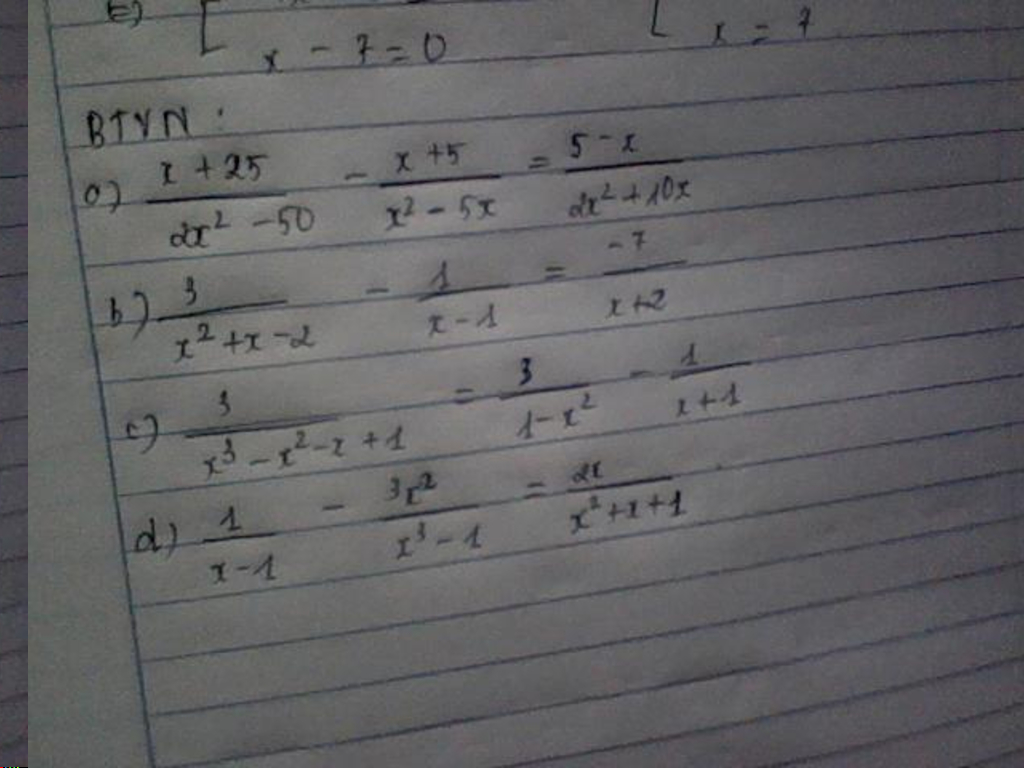 x - 7 = 0 [ x = 7
BTVN :
a) \frac{x + 25}{2x² - 50} - \frac{x + 5}{x² - 5x} = \frac{5 - x}{2x² + 10x}
b) \frac{3}{x² + x - 2} - \frac{1}{x - 1} = \frac{-7}{x + 2}
c) \frac{3}{x³ - x² - x + 1} = \frac{3}{1 - x²} - \frac{1}{x + 1}
d) \frac{1}{x - 1} - \frac{3x²}{x³ - 1} = \frac{2x}{x² + x + 1}